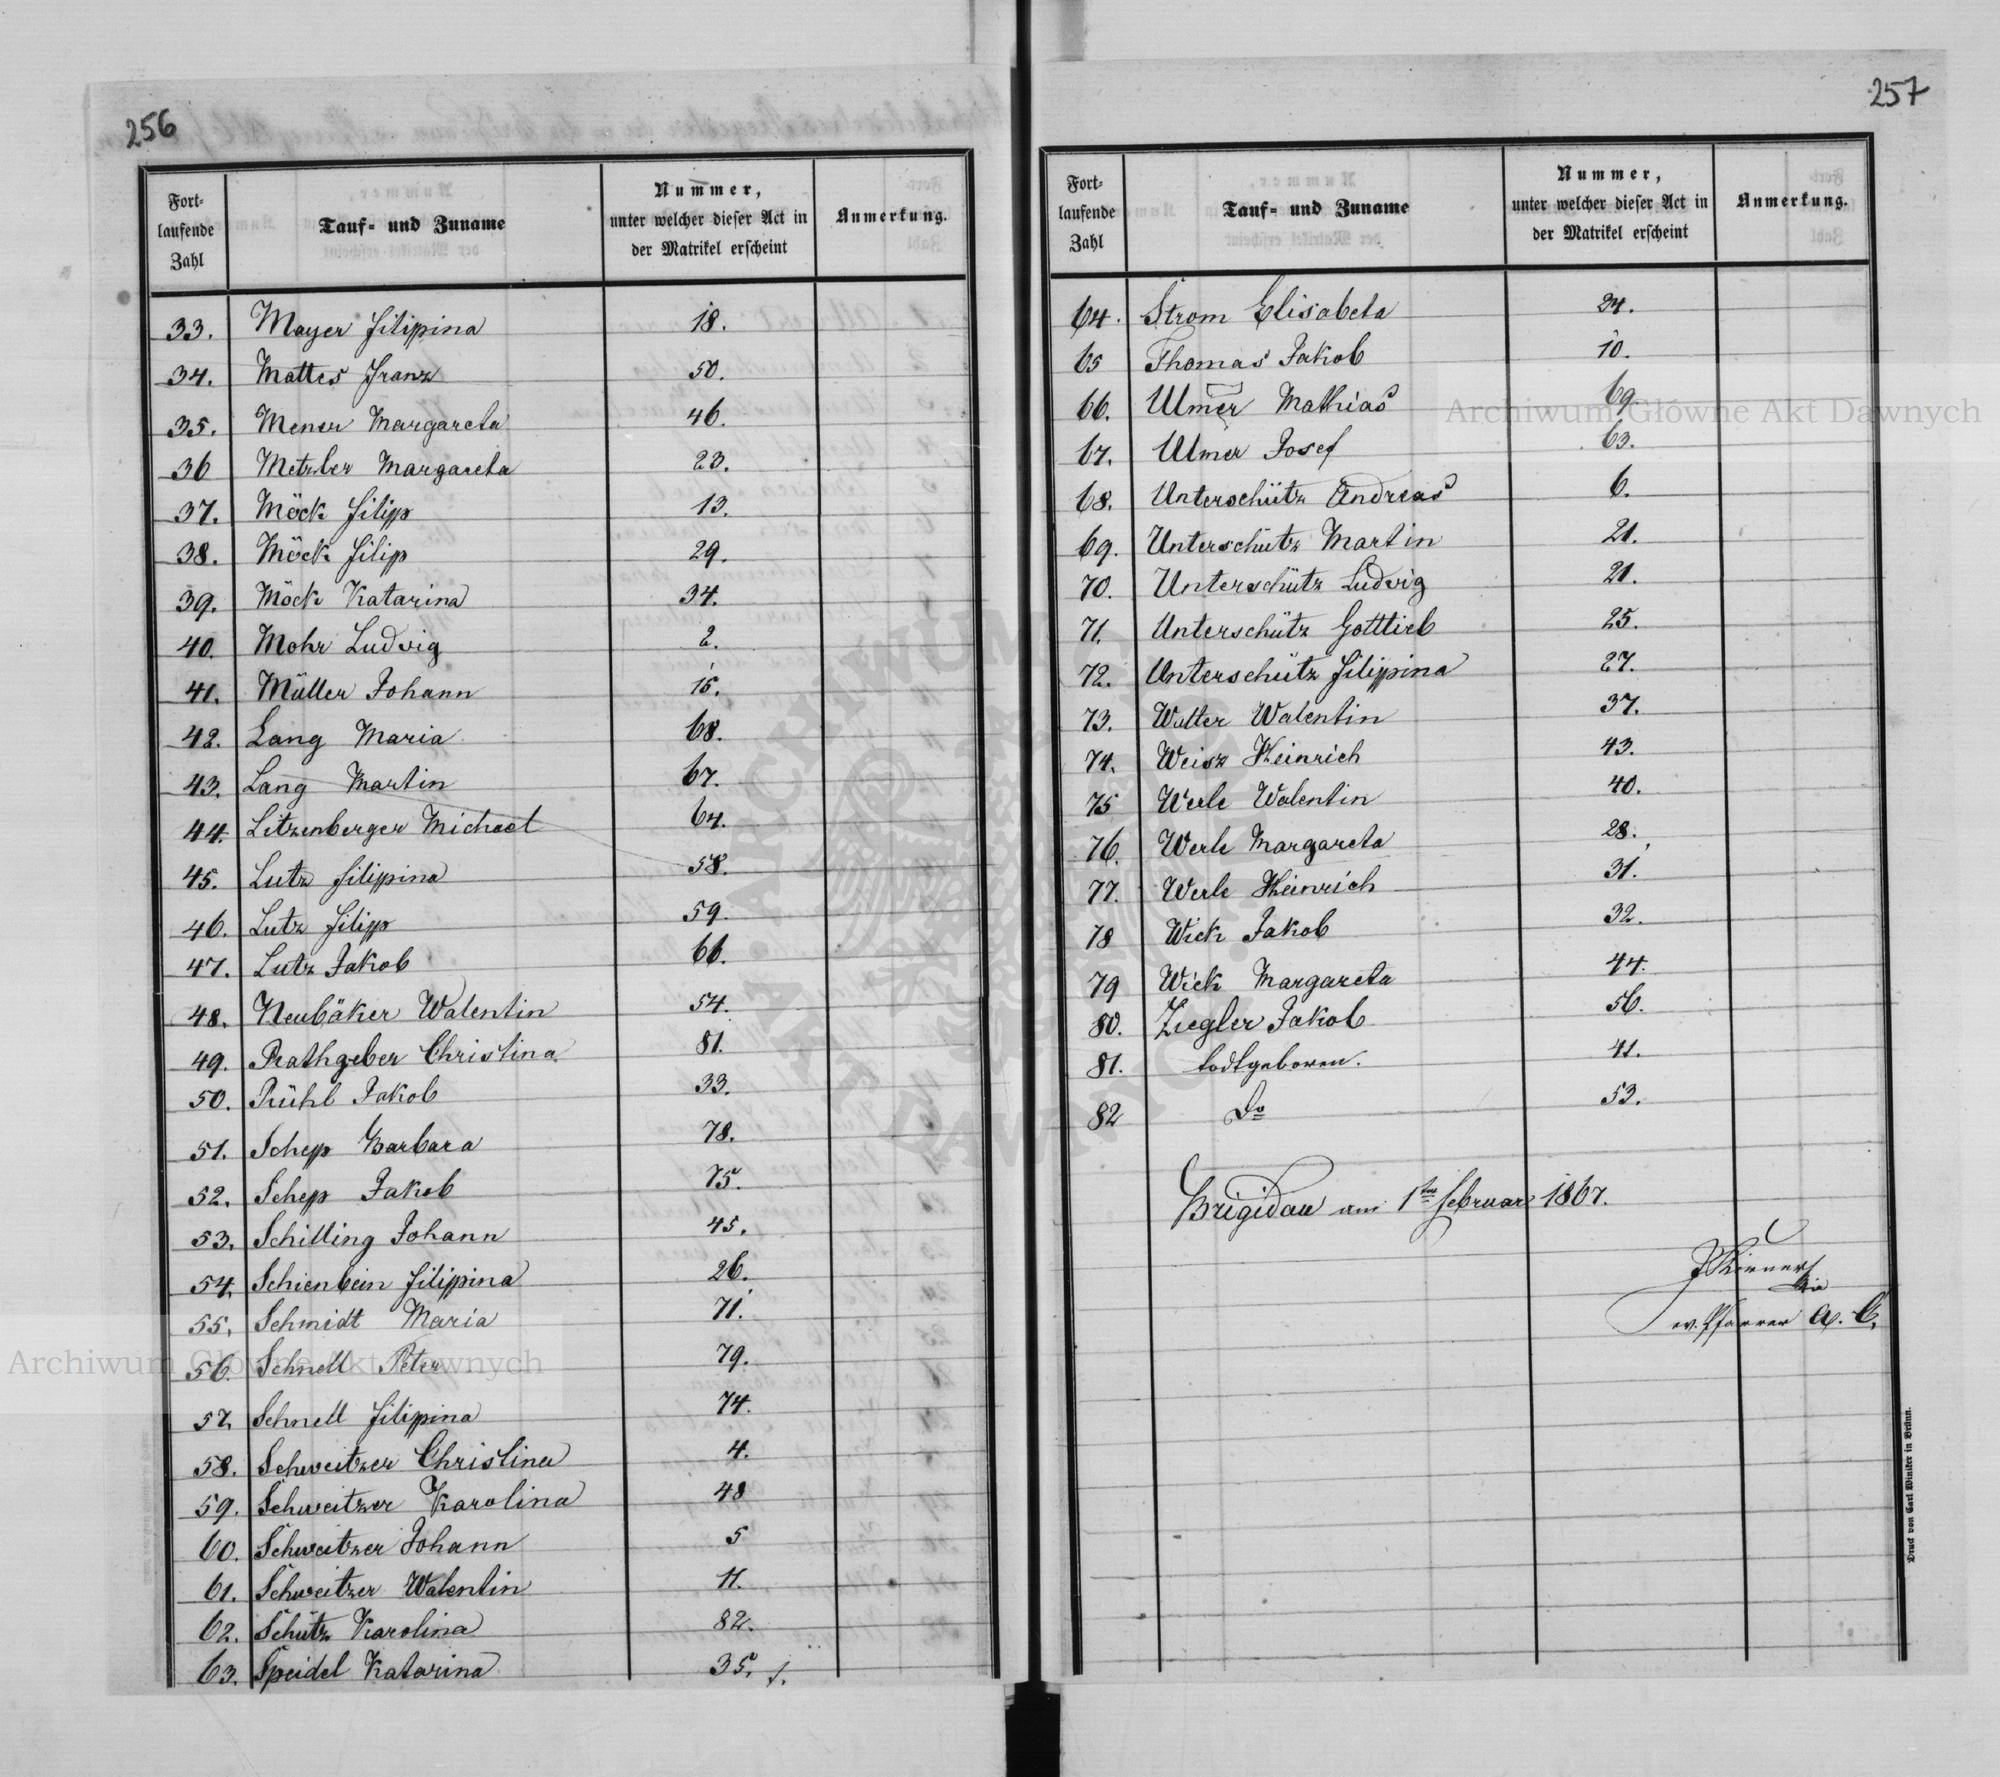 256
Fort-
laufende
Zahl
Tauf- und Zuname
Nummer,
unter welcher dieser Act in
der Matrikel erscheint
Anmerkung.
33. Mayer Filipina 18.
34. Mattes Franz 50.
35. Mener Margareta 46.
36 Metzler Margareta 23.
37. Möck Filipp 13.
38. Möck Filip 29.
39. Möck Katarina 34.
40. Mohr Ludvig 2.
41. Müller Johann 15.
42. Lang Maria 68.
43. Lang Martin 67.
44. Litzenberger Michael 64.
45. Lutz Filippina 58.
46. Lutz Filipp 59.
47. Lutz Jakob 66.
48. Neubäker Walentin 54.
49. Rathgeber Christina 81.
50. Rühl Jakob 33.
51. Schepp Barbara 78.
52. Schepp Jakob 75.
53. Schilling Johann 45.
54. Schienbein Filippina 26.
55. Schmidt Maria 71.
56. Schnell Peter 79.
57. Schnell Filippina 74.
58. Schweitzer Christina 4.
59. Schweitzer Karolina 48
60. Schweitzer Johann 5
61. Schweitzer Walentin 11.
62. Schütz Karolina 82.
63. Speidel Katarina 35.
257
Fort-
laufende
Zahl
Tauf- und Zuname
Nummer,
unter welcher dieser Act in
der Matrikel erscheint
Anmerkung.
64. Strom Elisabeta 24.
65 Thomas Jakob 10.
66. Ulmer Mathias 69.
67. Ulmer Josef 63.
68. Unterschütz Andreas 6.
69. Unterschütz Martin 21.
70. Unterschütz Ludvig 21.
71. Unterschütz Gotttieb 25.
72. Unterschütz Filippina 27.
73. Walter Walentin 37.
74. Weisz Heinrich 43.
75 Werle Walentin 40.
76. Werle Margareta 28.
77. Werle Heinrich 31.
78 Wick Jakob 32.
79 Wick Margareta 44.
80. Ziegler Jakob 56.
81. todtgeboren. 41.
82 Do 53.
Brigidau am 1ten Februar 1867.
ev. Pfarrer A. C.
Druck von Carl Winiker in Brünn.
Archiwum Główne Akt Dawnych
Archiwum Główne Akt Dawnych
ARCHIWUM GŁÓWNE AKT DAWNYCH